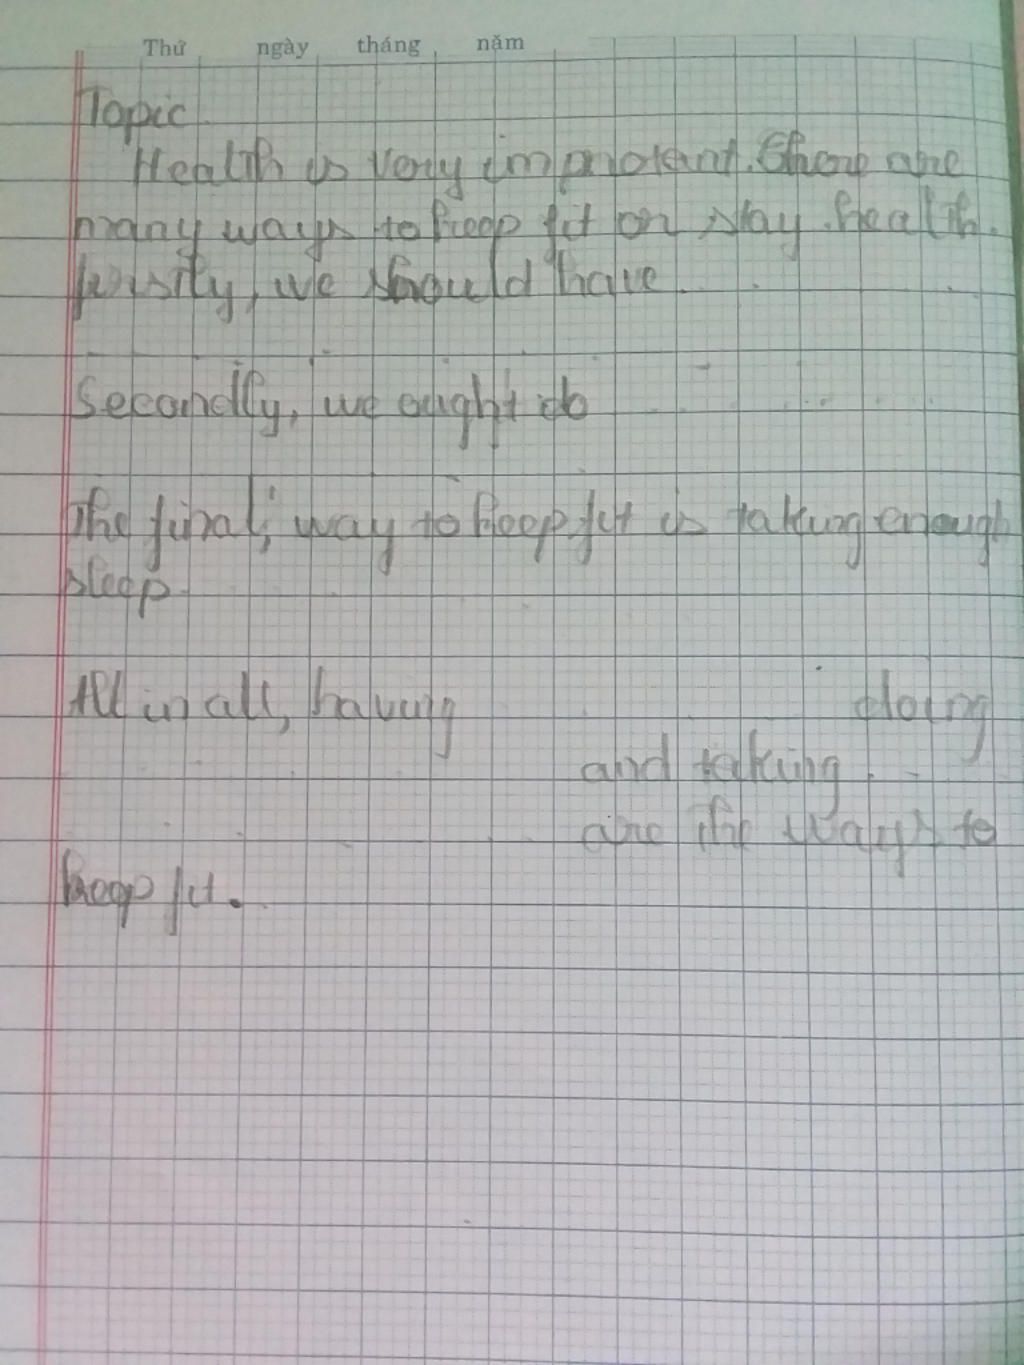 Thứ ngày tháng năm
Topic
Health is very impnotant. There are
many ways to keep fit or stay health.
firstly, we should have
Secondly, we ought do
The final, way to keep fit is taking enough
sleep.
All in all, having doing
and taking
are the ways to
keep fit.